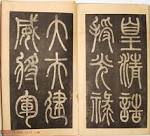 皇清誥
授光祿
大夫建
威將軍